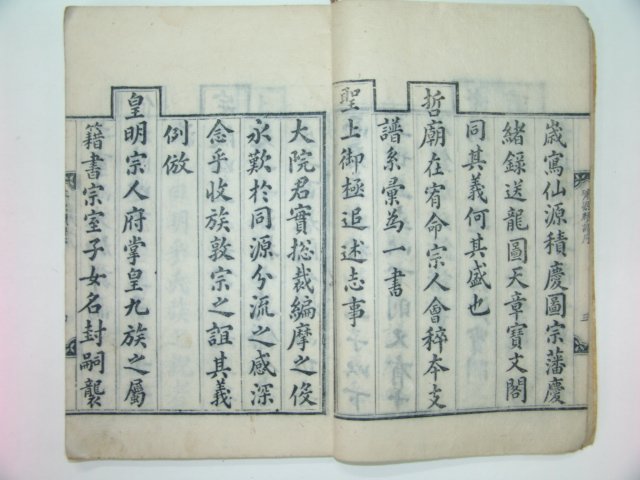 歲寫仙源積慶圖宗藩慶
緖錄送龍圖天章寶文閣
同其義何其盛也
哲廟在宥命宗人會稡本支
譜系彙為一書
聖上御極追述志事
大院君實揔裁編摩之伇
永歎於同源分流之感深
念乎收族敦宗之誼其義
例倣
皇明宗人府掌皇九族之屬
籍書宗室子女名封嗣襲